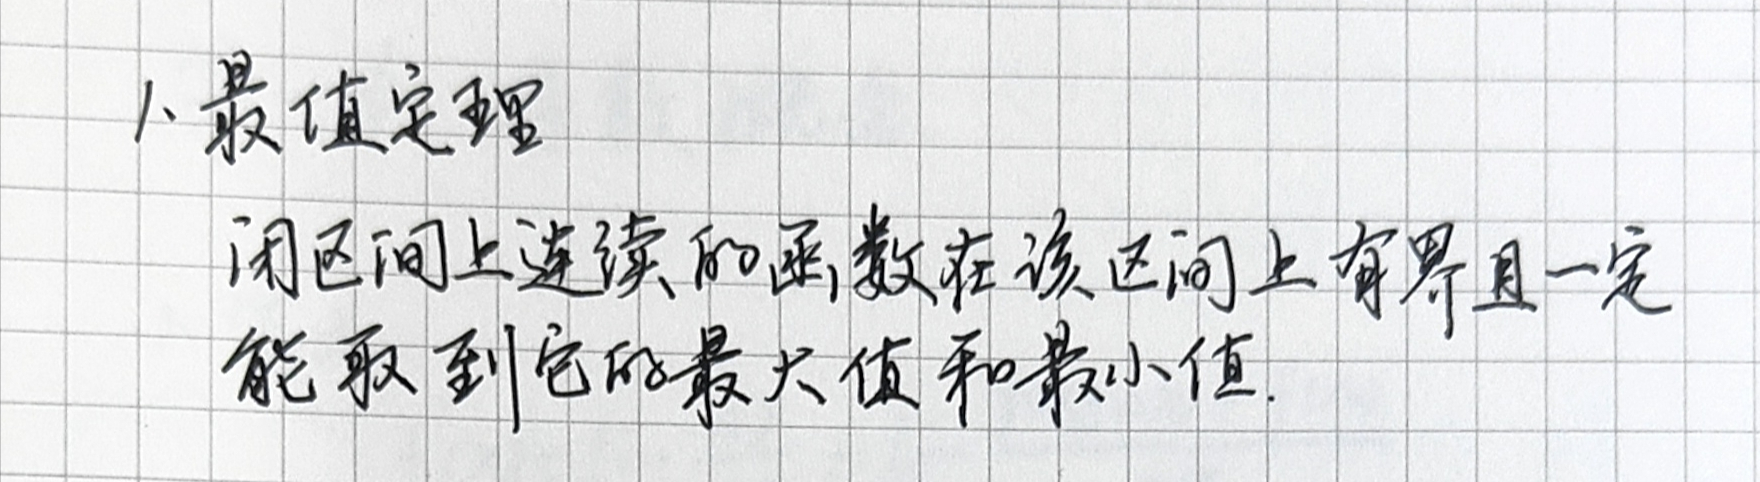 1、最值定理
闭区间上连续的函数在该区间上有界且一定
能取到它的最大值和最小值.